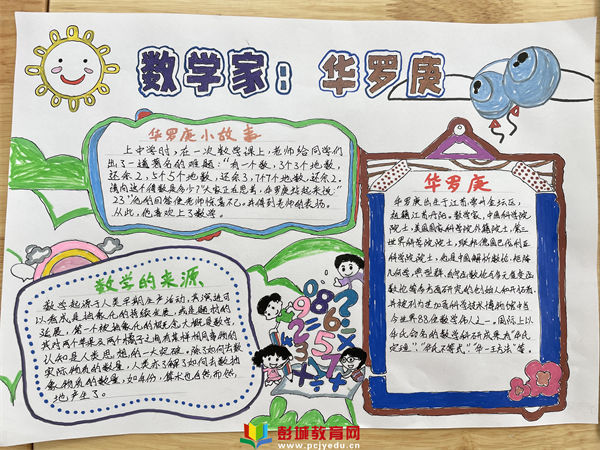 数学家：华罗庚
华罗庚小故事
上中学时，在一次数学课上，老师给同学们
出了一道著名的难题："有一个数，3个3个地数，
还余2，5个5个地数，还余3，7个7个地数，还余2，
请问这个得数是多少？"大家正在思考，华罗庚站起来说"
23"他的回答使老师惊喜不已，并得到老师的表扬。
从此，他喜欢上了数学。
数学的来源
数学起源于人类早期生产活动，其演进可
以看成是抽象化的持续发展，或是题材的
延展，第一个被抽象化的概念大概是数字，
其对两个苹果及两个橘子之间有某样相同事物的
认知是人类思想的一大突破，除了如何去数
实际物质的数量，人类亦了解了如何去数抽
象物质的数量，如年份，算术也自然而然
地产生了。
华罗庚
华罗庚出生于江苏常州金坛区，
祖籍江苏丹阳，数学家，中国科学院
院士，美国国家科学院外籍院士，第三
世界科学院院士，联邦德国巴伐利亚
科学院院士，他是中国解析数论、矩阵
几何学、典型群、自守函数论与多元复变函
数论等多方面研究的创始人和开拓者，
并被列为芝加哥科学技术博物馆中当
今世界88位数学伟人之一，国际上以
华氏命名的数学科研成果有"华氏
定理"、"华氏不等式"、"华—王方法"等。
0862
9=6÷
23×57
彭城教育网
www.pcjyedu.cn